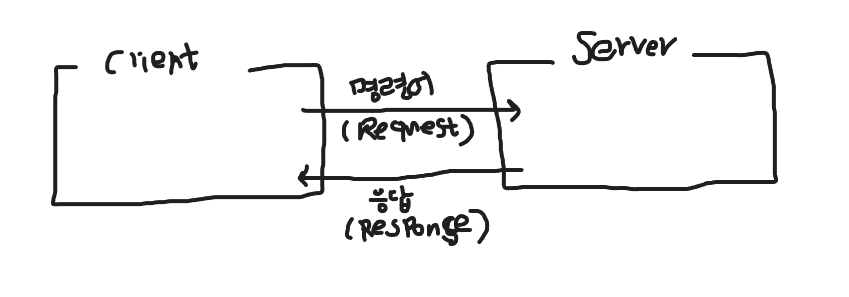 Client
Server
명령어
(Request)
응답
(Response)